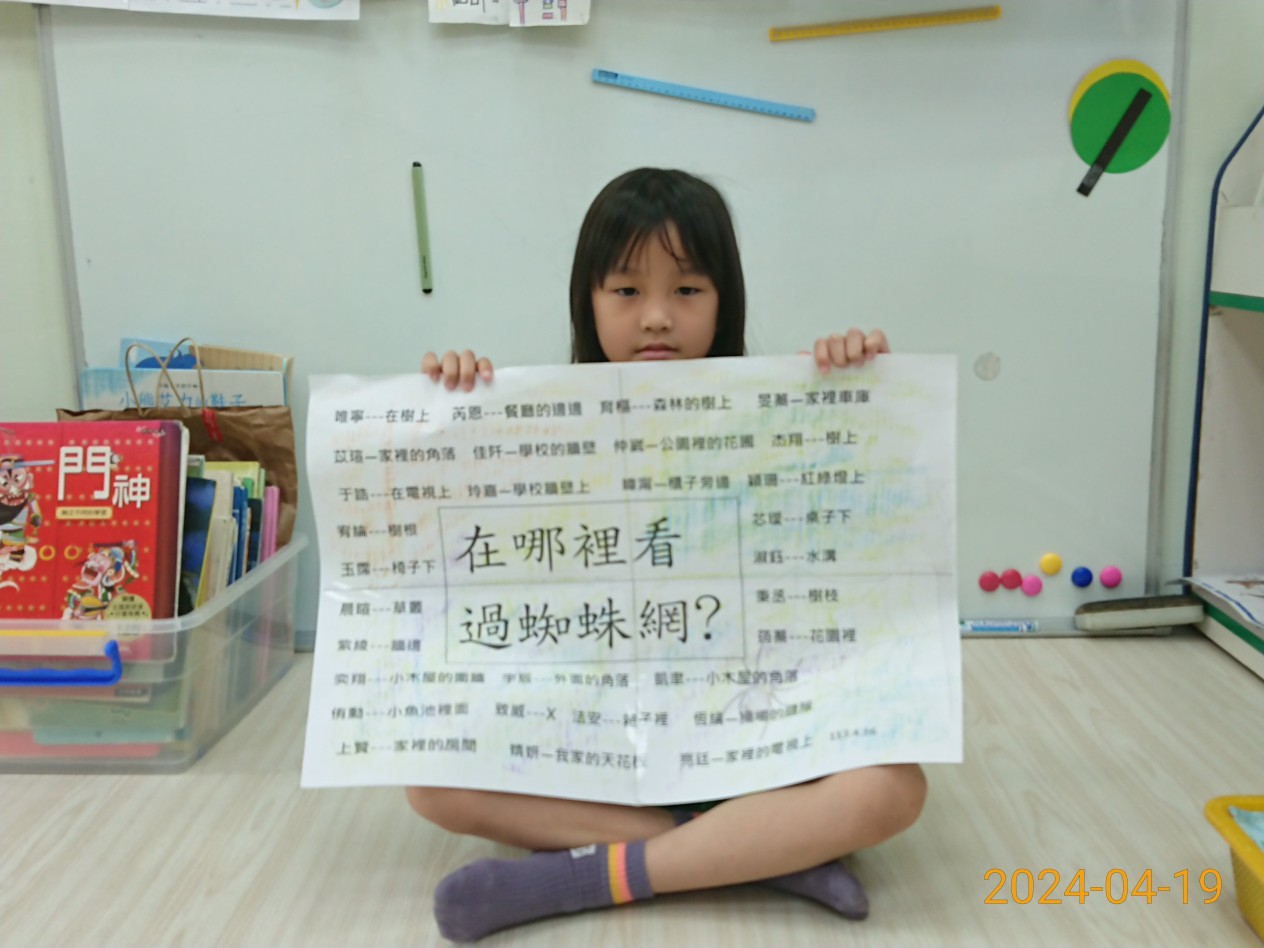 小熊艾力的鞋子
門神
唯寧---在樹上 芮恩---餐廳的牆邊 育樞---森林的樹上 旻蕎—家裡車庫
苡瑄—家裡的角落 佳阡—學校的牆壁 仲崴—公園裡的花圃 杰翔---樹上
于皓---在電視上 玲嘉—學校牆壁上 —櫃子旁邊 穎珊---紅綠燈上
宥綸---樹根
芯璦---桌子下
玉霈---椅子下
淑鈺---水溝
在哪裡看
過蜘蛛網?
晨暄---草叢
秉丞---樹枝
紫綾---牆邊
蕎---花園裡
奕翔---小木屋的圍牆 宇辰---外面的角落 凱聿---小木屋的角落
侑勳---小魚池裡面 致崴---X 法安---箱子裡 恆綸—
上賢---家裡的房間 晴妍—我家的天花板 亮廷—家裡的電視上
2024-04-19